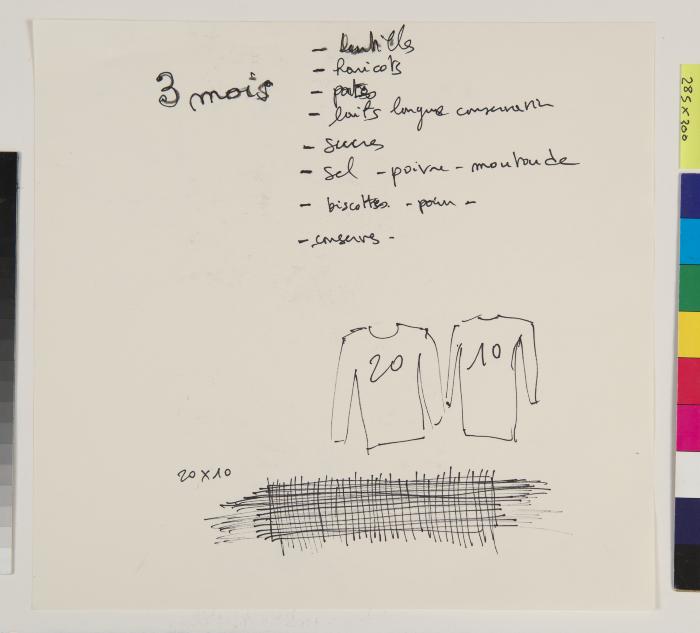 3 mois
- lentilles
- haricots
- pates
- laits longue conservation
- sucres
- sel - poivre - moutarde
- biscottes - pain -
- conserves -
20
10
20 x 10
285 x 300